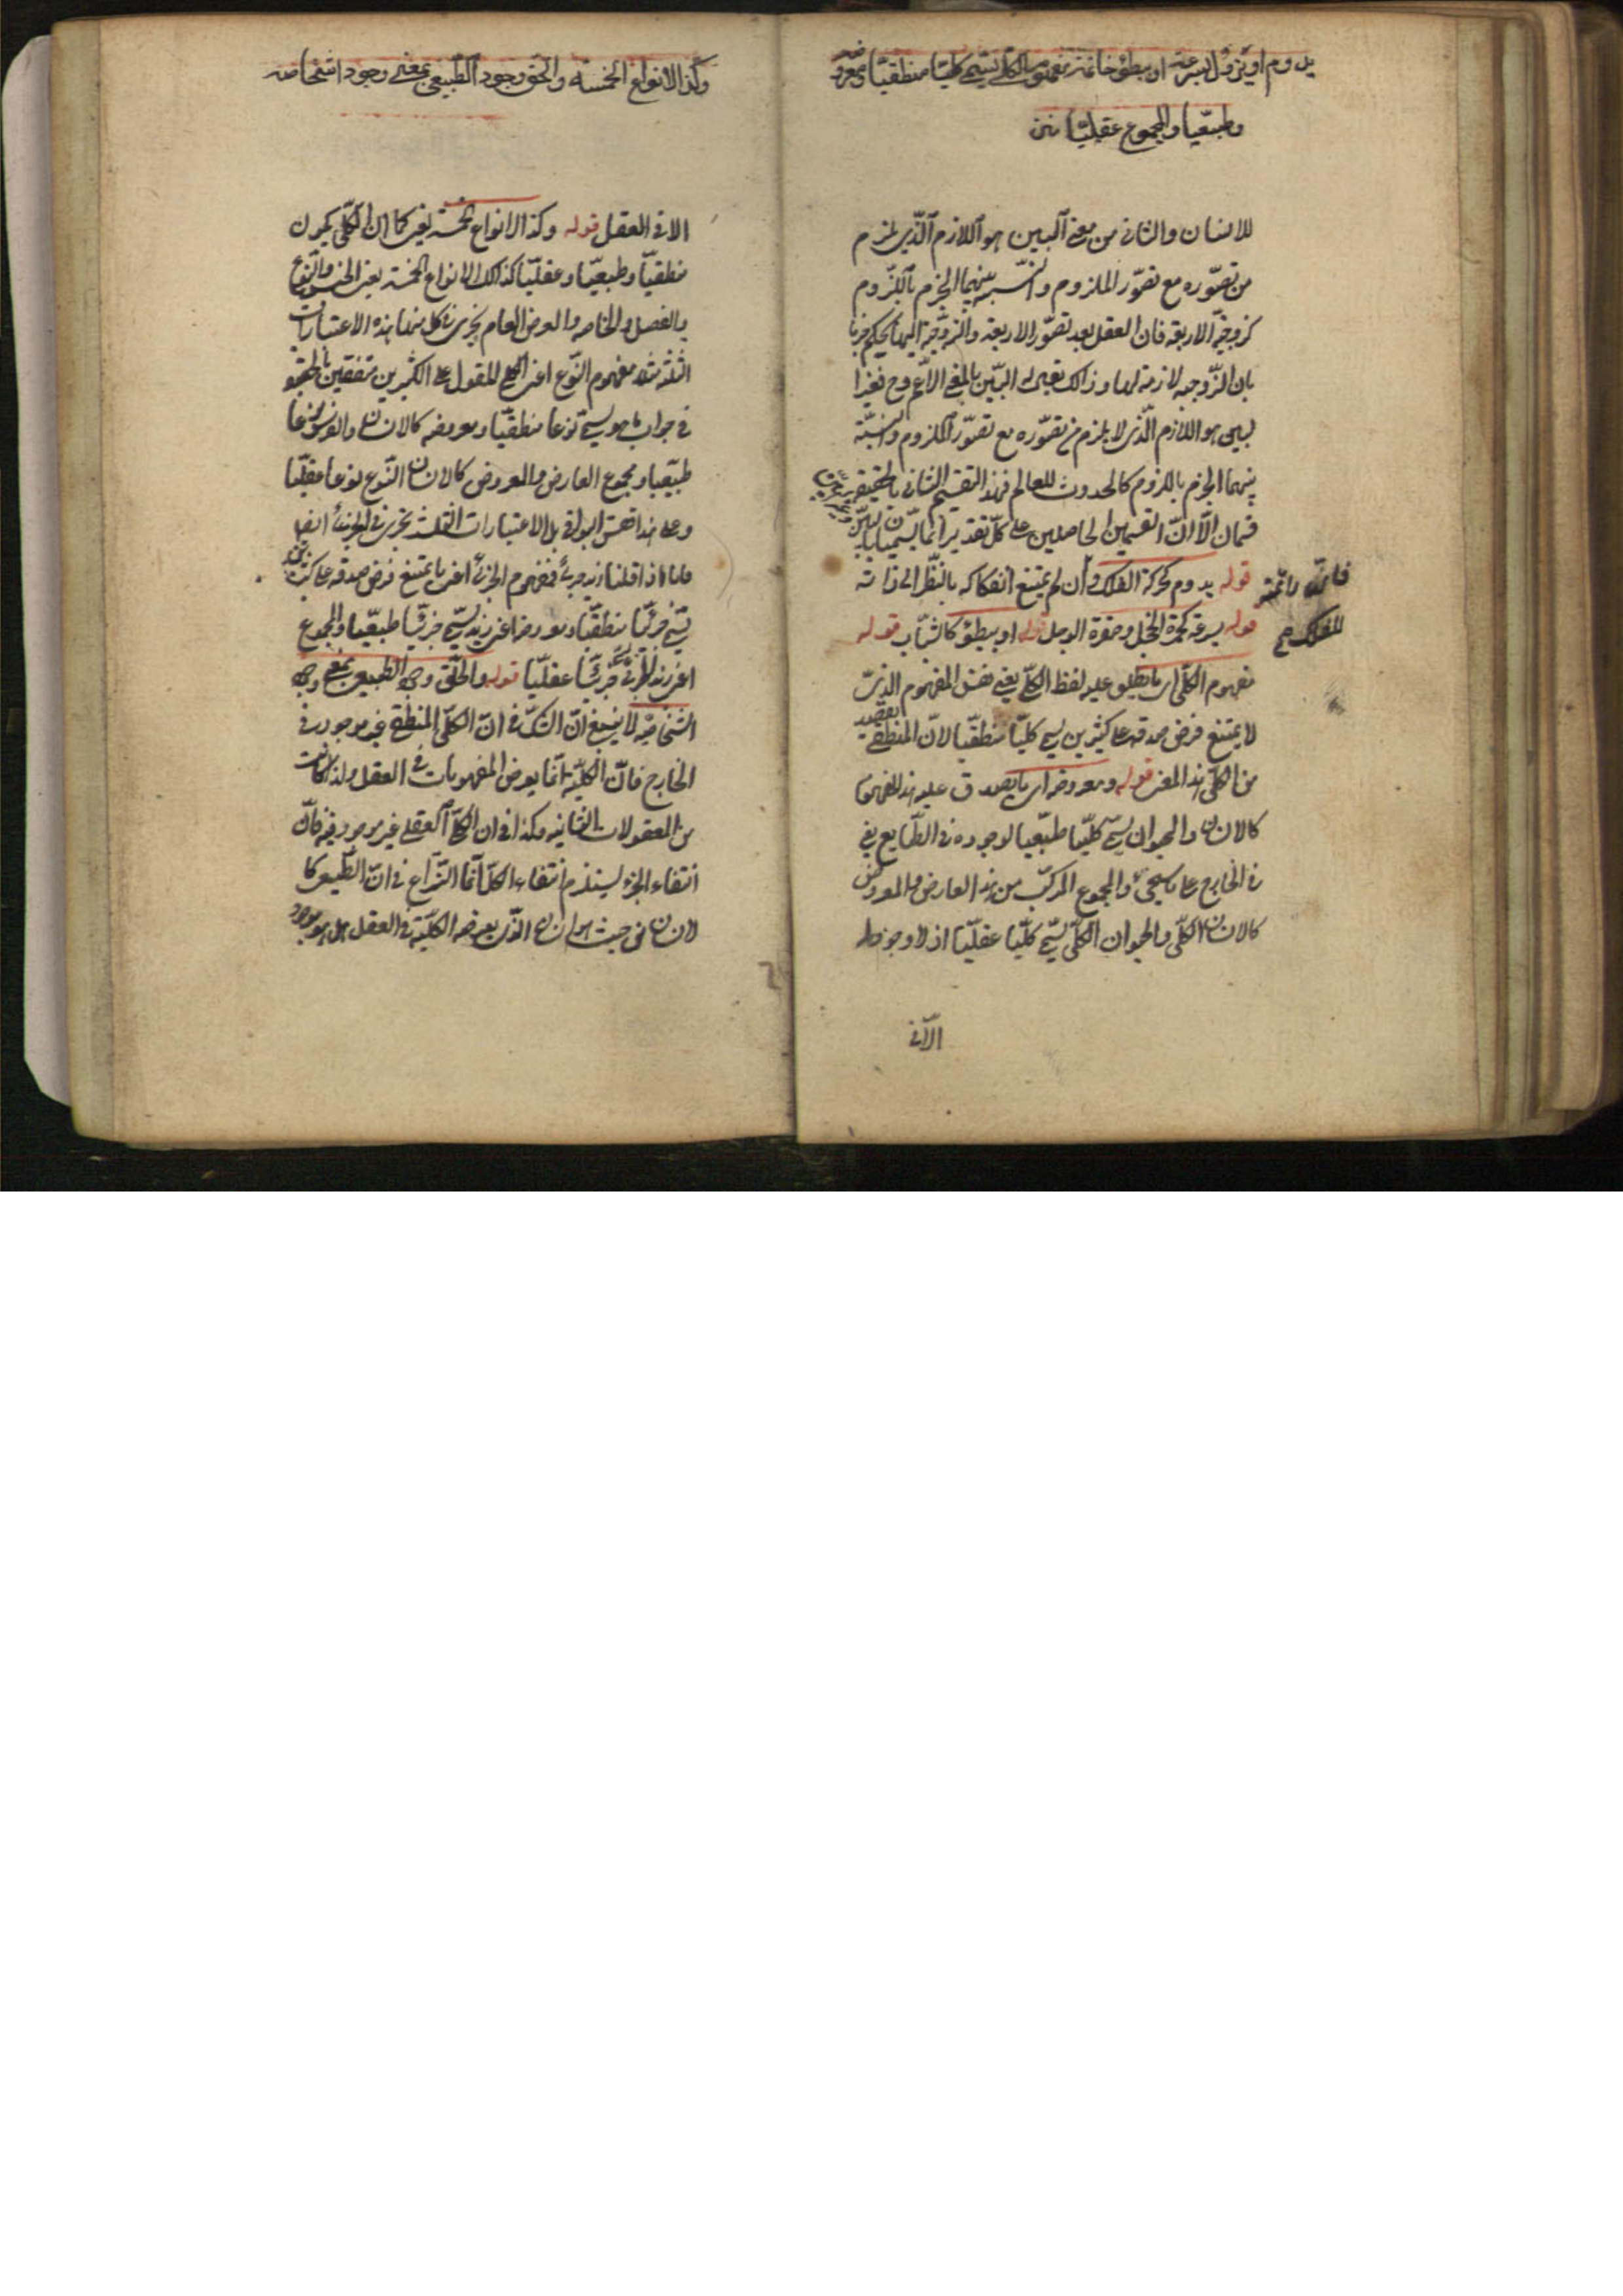 يدوم او يزول بسرعة او بطؤ خاتمة مفهوم الكلي يسمى كليا منطقيا ومعروضه
وطبعيا والمجموع عقليا
للانسان والثانى من معنى البين هو اللازم الذى يلزم
من تصوّره مع تصوّر الملزوم والنسبة بينهما الجزم باللزوم
كزوجيّة الاربعة فان العقل بعد تصوّر الاربعة والزوجية اليها يحكم جزما
بان الزّوجيه لازمة لها وذالك يقال له البيّن بالمعنى الاعم وح فغير ا
لبين هو اللازم الّذى لا يلزم من تصوّره مع تصوّر الملزوم والنسبة
بينهما الجزم باللزوم كالحدوث للعالم فهذا التقسيم الثانى بالحقيقة
قسمان الّا انّ القسمين الحاصلين على كلّ تقدير انما يسمّيان بالبيّن
قوله يدوم كحركة الفلك وان لم يمتنع انفكاكه بالنظر الى ذاته
فانّه دائمة
للفلك صح
قوله بسرعة كحمرة الخجل وصفرة الوجل قوله او بطؤ كالشباب قوله
مفهوم الكلّى اى ما يطلق عليه لفظ الكلّى يعنى نفس المفهوم الذى
لا يمتنع فرض صدقه على كثيرين يسمى كليّا منطقيّا لانّ المنطقى يقصد
من الكلّى هذا المعنى قوله ومعروضه اى ما يصدق عليه هذا المفهوم
كالانسان والحيوان يسمى كليّا طبيعيا لوجوده فى الطّبايع يعنى
فى الخارج على ما سيجئ والمجموع المركّب من هذا العارض والمعروض
كالانسان الكلّى والحيوان الكلّى يسمى كليّا عقليّا اذ لا وجود له
الّا فى
وكذا الانواع الخمسة والحق وجود الطبيعى بمعنى وجود اشخاصه
الا فى العقل قوله وكذا الانواع الخمسة يعنى كما ان الكلّى يكون
منطقيّا وطبعيّا وعقليّا كذالك الانواع الخمسة يعنى الجنس والنّوع
والفصل والخاصه والعرض العام يجرى فى كل منها هذه الاعتبارات
الثلثة مثلا مفهوم النّوع اعنى الكلى المقول على الكثيرين متفقين بالحقيقة
فى جواب ما هو يسمى نوعا منطقيّا ومعروضه كالانسان والفرس نوعا
طبيعيا ومجموع العارض والمعروض كالانسان النّوع نوعا عقليّا
وعلى هذا فقس البواقى بل الاعتبارات الثلث تجرى فى الجزئى ايضا
فانا اذا قلنا زيد جزئى فمفهوم الجزئى اعنى ما يمتنع فرض صدقه على كثيرين
يسمى جزئيّا منطقيّا ومعروضه اعنى زيد يسمى جزئيّا طبيعيّا والمجموع
اعنى زيد الجزئى يسمى جزئيّا عقليّا قوله والحقّ وجود الطبيعى بمعنى وجود
اشخاصه لا ينبغى ان الشكّ فى انّ الكلّى المنطقى غير موجود فى
الخارج فانّ الكليّة انّما يعرض المفهومات فى العقل ولذا كانت
من المعقولات الثانيه وكذا فى ان الكلّى العقلى غير موجود فيه فانّ
انتفاء الجزء يستلزم انتفاء الكلّ انّما النّزاع فى انّ الطّبيعى كا
لانسان من حيث هو انسان الّذى يعرضه الكليّة فى العقل هل هو موجود